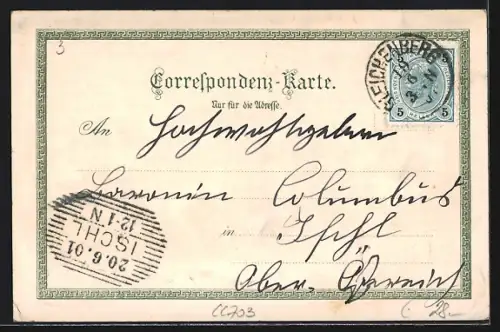 3
GLEICHENBERG
5 5
Correspondenz-Karte.
Nur für die Adresse.
An Hochwohlgeboren
Baronin Columbus
in Ischl
Ober-Österreich
20.6.01
ISCHL
12-1 N
CC703
28.-